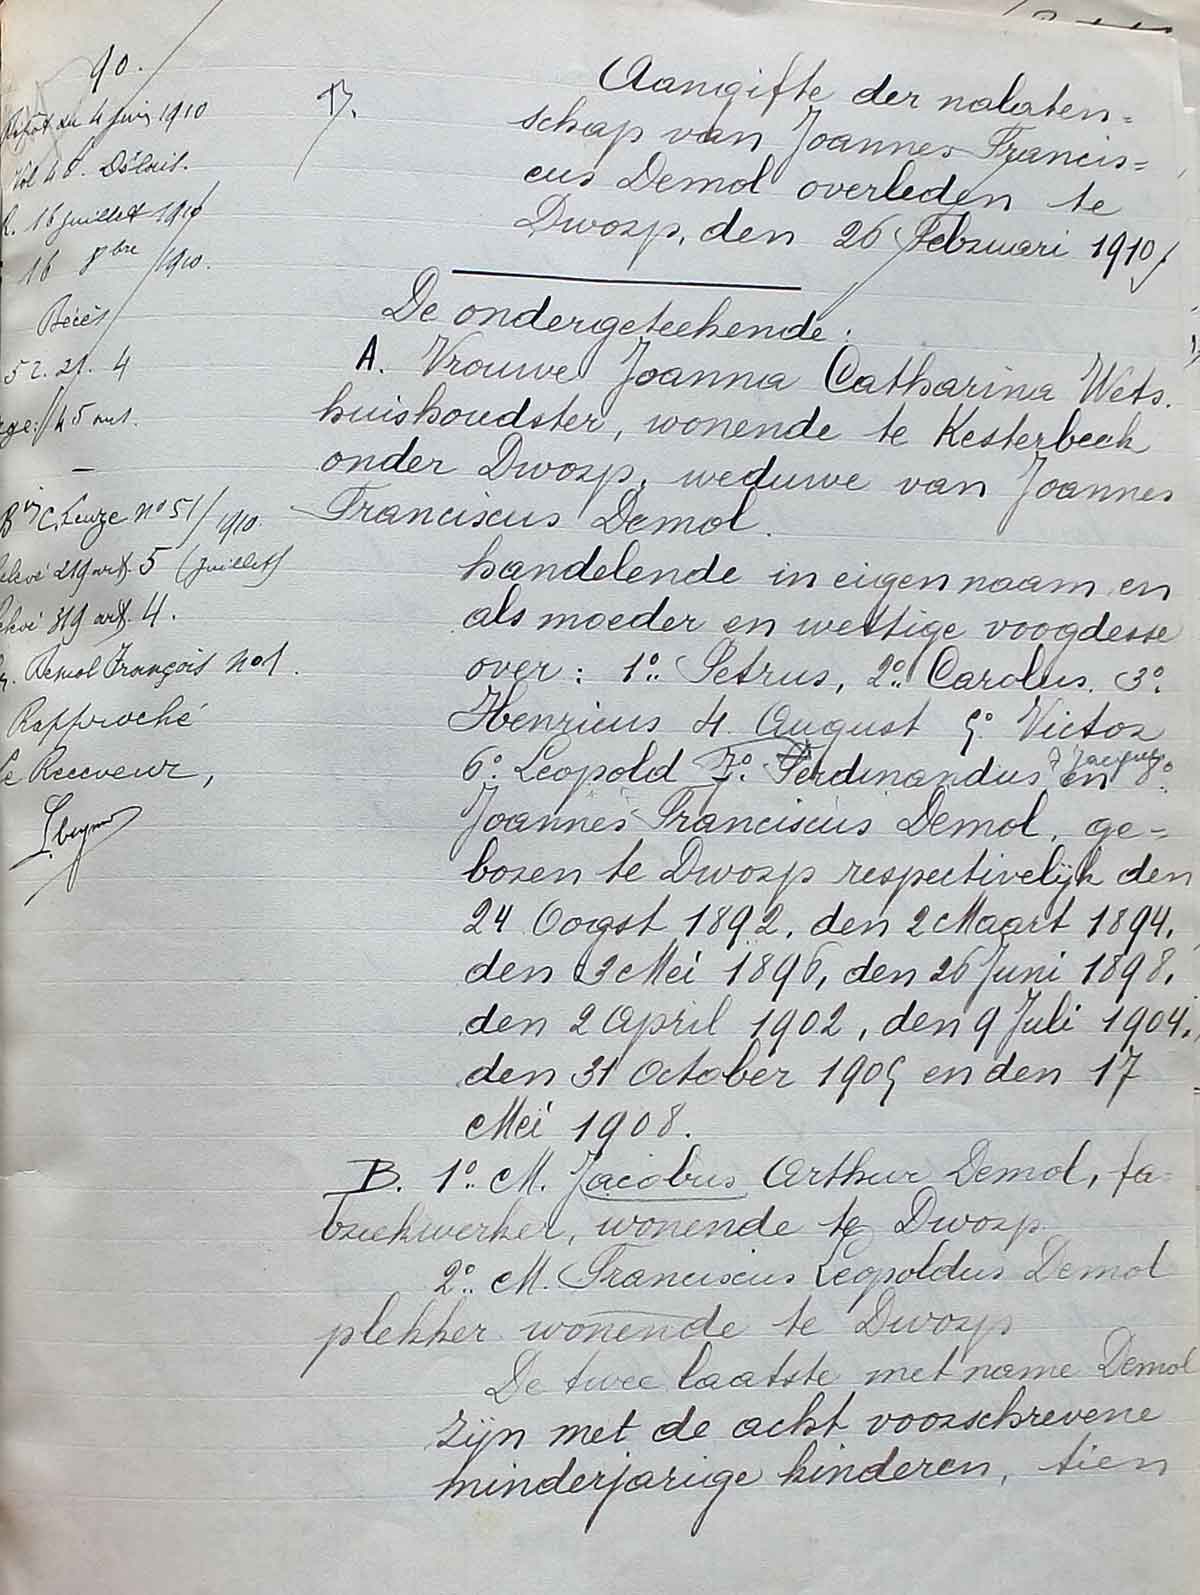 90.
Dépôt du 4 juin 1910
Vol 48. Déclait.
R. 16 juillet 1910
16 8bre 1910.
Décès
52. 21. 4
45 art.
Bin C. Leuze no 51/1910
relevé 219 art. 5 (Juillet)
relevé 319 art. 4.
Demol François no 1.
Rapproché
Le Receveur,
Aangifte der nalaten=
schap van Joannes Francis=
cus Demol overleden te
Dworp, den 26 Februari 1910
De ondergeteekende:
A. Vrouwe Joanna Catharina Wets.
huishoudster, wonende te Kesterbeek
onder Dworp, weduwe van Joannes
Franciscus Demol.
handelende in eigen naam en
als moeder en wettige voogdesse
over: 1o. Petrus, 2o. Carolus. 3o.
Henricus 4. August 5o Victor
6o. Leopold 7o. Ferdinandus en 8o.
Joannes Franciscus Demol, ge=
boren te Dworp respectivelijk den
24 Oogst 1892, den 2 Maart 1894,
den 3 Mei 1896, den 26 Juni 1898,
den 2 April 1902, den 9 Juli 1904,
den 31 October 1905 en den 17
Mei 1908.
B. 1o. M. Jacobus Arthur Demol, fa-
briekwerker, wonende te Dworp
2o. M. Franciscus Leopoldus Demol
plekker wonende te Dworp
De twee laatste met name Demol
zijn met de acht voorschrevene
minderjarige kinderen, tien